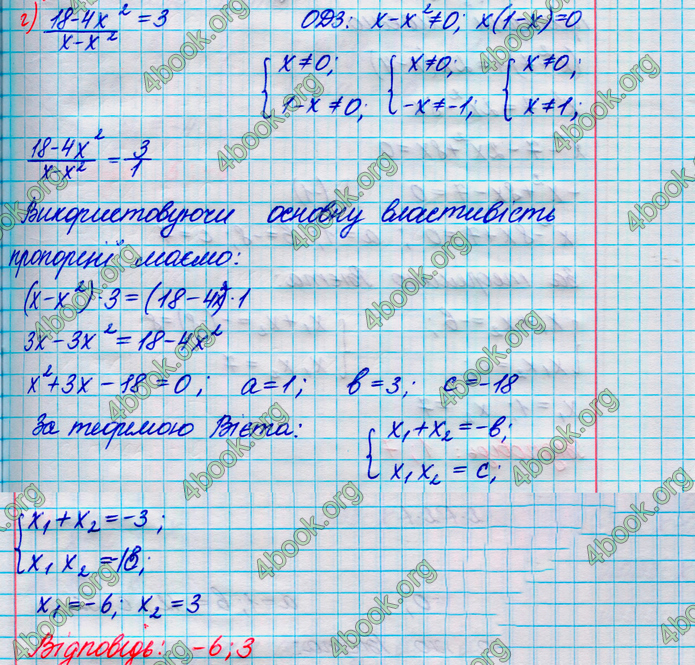 г) (18-4x²)/(x-x²) = 3 ОДЗ: x-x²≠0; x(1-x)=0
{ x≠0; 1-x≠0; { x≠0; -x≠-1; { x≠0; x≠1;
(18-4x²)/(x-x²) = 3/1
Використовуючи основну властивість
пропорції маємо:
(x-x²)·3=(18-4x²)·1
3x-3x²=18-4x²
x²+3x-18=0; a=1; в=3; c=-18
За теоремою Вієта: { x₁+x₂=-в; x₁x₂=c;
{ x₁+x₂=-3;
x₁x₂=-18;
x₁=-6; x₂=3
Відповідь: -6; 3
4book.org